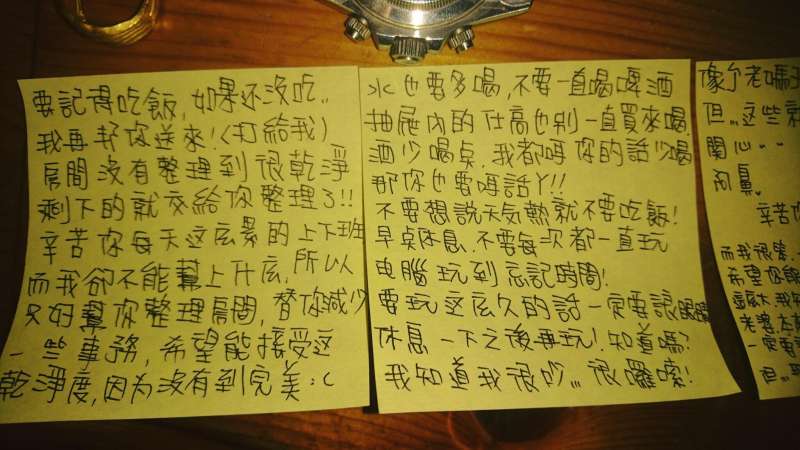 要記得吃飯,如果还沒吃..
我再帮你送來!(打給我)
房間沒有整理到很乾淨
剩下的就交給你整理了!!
辛苦你每天这么累的上下班
而我卻不能幫上什么,所以
只好幫你整理房間,替你減少
一些事務,希望能接受这
乾淨度,因为沒有到完美:(
水也要多喝,不要一直喝啤酒
抽屜內的仕高也別一直買來喝.
酒少喝点,我都听你的話少喝
那你也要听話丫!!
不要想說天氣熱就不要吃飯!
早点休息,不要每次都一直玩
电腦玩到忘記時間!
要玩这么久的話一定要讓眼睛
休息一下之後再玩!知道嗎?
我知道我很吵... 很囉嗦!
像个老媽子
但...这些就
關心..
辛苦你
而我很笨.
希望你能
老婆
一定要
但...